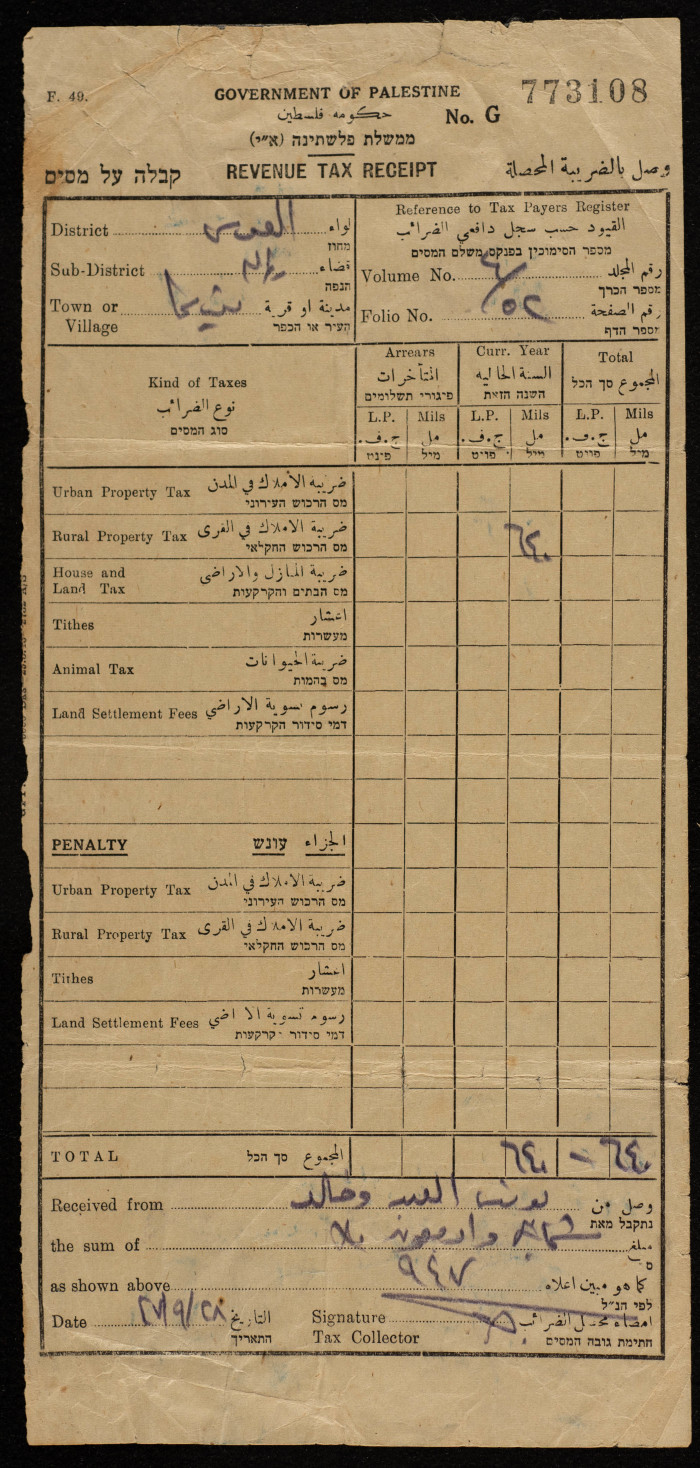 F. 49.
GOVERNMENT OF PALESTINE
773108
حكومة فلسطين
No. G
ממשלת פלשתינה (א״י)
קבלה על מסים
REVENUE TAX RECEIPT
وصل بالضريبة المحصلة
District القدس لواء
מחוז
Sub-District قضاء
הנפה
Town or مدينة او قرية
Village העיר או הכפר
Reference to Tax Payers Register
القيود حسب سجل دافعي الضرائب
מספר הסימוכין בפנקס משלם המסים
Volume No. رقم المجلد
מספר הכרך
Folio No. ٥٢ رقم الصفحة
מספר הדף
Kind of Taxes
نوع الضرائب
סוג המסים
Arrears
المتأخرات
פיגורי תשלומים
Curr. Year
السنة الحالية
השנה הזאת
Total
المجموع סך הכל
L.P. Mils L.P. Mils L.P. Mils
ج.ف. مل ج.ف. مل ج.ف. مل
מיל פויט מיל פויט מיל
Urban Property Tax ضريبة الأملاك في المدن
מס הרכוש העירוני
Rural Property Tax ضريبة الاملاك في القرى
מס הרכוש החקלאי
House and ضريبة المنازل والاراضي
Land Tax מס הבתים והקרקעות
Tithes اعشار
מעשרות
Animal Tax ضريبة الحيوانات
מס בהמות
Land Settlement Fees رسوم تسوية الاراضي
דמי סידור הקרקעות
PENALTY עונש الجزاء
Urban Property Tax ضريبة الاملاك في المدن
מס הרכוש העירוני
Rural Property Tax ضريبة الاملاك في القرى
מס הרכוש החקלאי
Tithes اعشار
מעשרות
Land Settlement Fees رسوم تسوية الاراضي
דמי סידור קרקעות
TOTAL סך הכל المجموع
Received from وصل من
נתקבל מאת
the sum of مبلغ
as shown above ٩٤٧ كما هو مبين اعلاه
לפי הנ״ל
Date التاريخ
התאריך
Signature امضاء محصل الضرائب
Tax Collector חתימת גובה המסים